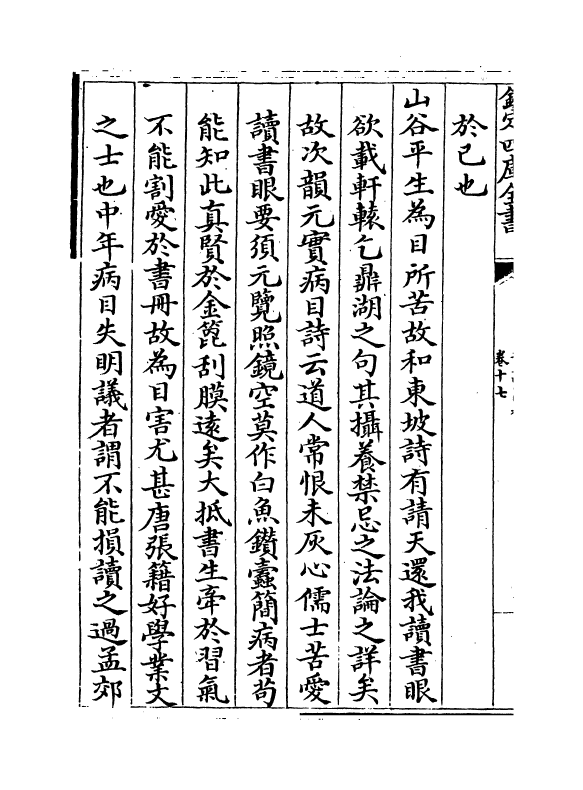 欽定四庫全書
卷十七
於己也
山谷平生為目所苦故和東坡詩有請天還我讀書眼
欲載軒轅乞鼎湖之句其攝養禁忌之法論之詳矣
故次韻元實病目詩云道人常恨未灰心儒士苦愛
讀書眼要須元覽照鏡空莫作白魚鑽蠹簡病者苟
能知此真賢於金篦刮膜遠矣大抵書生牽於習氣
不能割愛於書冊故為目害尤甚唐張籍好學業文
之士也中年病目失明議者謂不能損讀之過孟郊